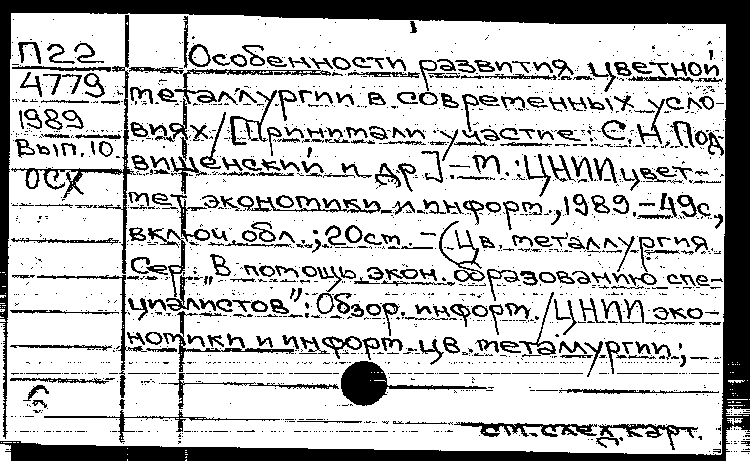 П22
4779
1989
Вып.10
ОСХ
Особенности развития цветной
металлургии в современных усло-
виях / [Принимали участие: С.Н. Под
вишенский и др.]. – М.: ЦНИИцвет-
мет экономики и информ., 1989. – 49с,
включ. обл.; 20см. – (Цв. металлургия
Сер. „В помощь экон. образованию спе-
циалистов": Обзор. информ. / ЦНИИ эко-
номики и информ. цв. металлургии;
см. след. карт.